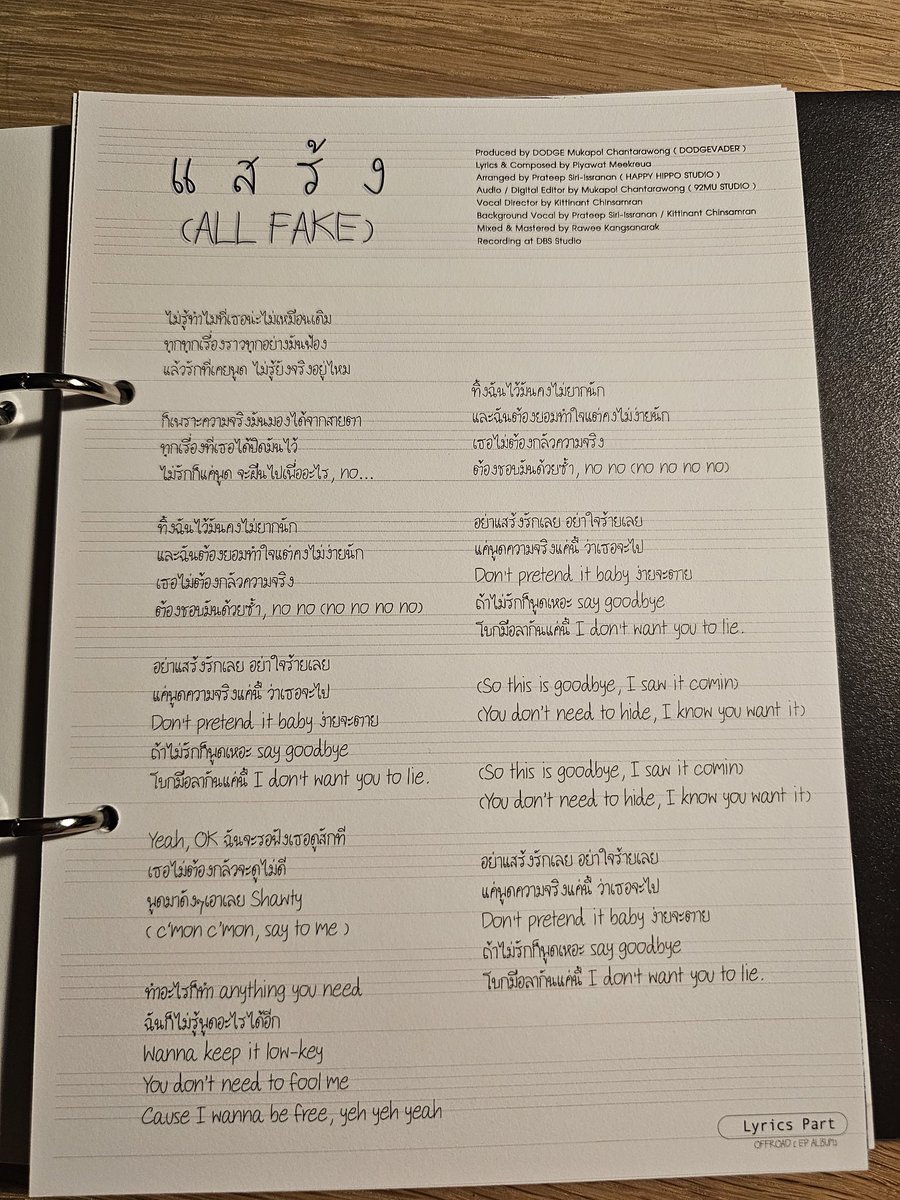 แสร้ง
(ALL FAKE)
Produced by DODGE Mukapol Chantarawong ( DODGEVADER )
Lyrics & Composed by Piyawat Meekreua
Arranged by Prateep Siri-Issranan ( HAPPY HIPPO STUDIO )
Audio / Digital Editor by Mukapol Chantarawong ( 92MU STUDIO )
Vocal Director by Kittinant Chinsamran
Background Vocal by Prateep Siri-Issranan / Kittinant Chinsamran
Mixed & Mastered by Rawee Kangsanarak
Recording at DBS Studio
ไม่รู้ทำไมที่เธอน่ะไม่เหมือนเดิม
ทุกทุกเรื่องราวทุกอย่างมันฟ้อง
แล้วรักที่เคยพูด ไม่รู้ยังจริงอยู่ไหม
ก็เพราะความจริงมันมองได้จากสายตา
ทุกเรื่องที่เธอได้ปิดมันไว้
ไม่รักก็แค่พูด จะฝืนไปเพื่ออะไร, no...
ทิ้งฉันไว้มันคงไม่ยากนัก
และฉันต้องยอมทำใจแต่คงไม่ง่ายนัก
เธอไม่ต้องกลัวความจริง
ต้องชอบมันด้วยซ้ำ, no no (no no no no)
อย่าแสร้งรักเลย อย่าใจร้ายเลย
แค่พูดความจริงแค่นี้ ว่าเธอจะไป
Don't pretend it baby ง่ายจะตาย
ถ้าไม่รักก็พูดเหอะ say goodbye
โบกมือลากันแค่นี้ I don't want you to lie.
Yeah, OK ฉันจะรอฟังเธอดูสักที
เธอไม่ต้องกลัวจะดูไม่ดี
พูดมาดังๆเอาเลย Shawty
( c'mon c'mon, say to me )
ทำอะไรก็ทำ anything you need
ฉันก็ไม่รู้พูดอะไรได้อีก
Wanna keep it low-key
You don't need to fool me
Cause I wanna be free, yeh yeh yeah
ทิ้งฉันไว้มันคงไม่ยากนัก
และฉันต้องยอมทำใจแต่คงไม่ง่ายนัก
เธอไม่ต้องกลัวความจริง
ต้องชอบมันด้วยซ้ำ, no no (no no no no)
อย่าแสร้งรักเลย อย่าใจร้ายเลย
แค่พูดความจริงแค่นี้ ว่าเธอจะไป
Don't pretend it baby ง่ายจะตาย
ถ้าไม่รักก็พูดเหอะ say goodbye
โบกมือลากันแค่นี้ I don't want you to lie.
(So this is goodbye, I saw it comin)
(You don't need to hide, I know you want it)
(So this is goodbye, I saw it comin)
(You don't need to hide, I know you want it)
อย่าแสร้งรักเลย อย่าใจร้ายเลย
แค่พูดความจริงแค่นี้ ว่าเธอจะไป
Don't pretend it baby ง่ายจะตาย
ถ้าไม่รักก็พูดเหอะ say goodbye
โบกมือลากันแค่นี้ I don't want you to lie.
Lyrics Part
OFFROAD ( EP ALBUM)